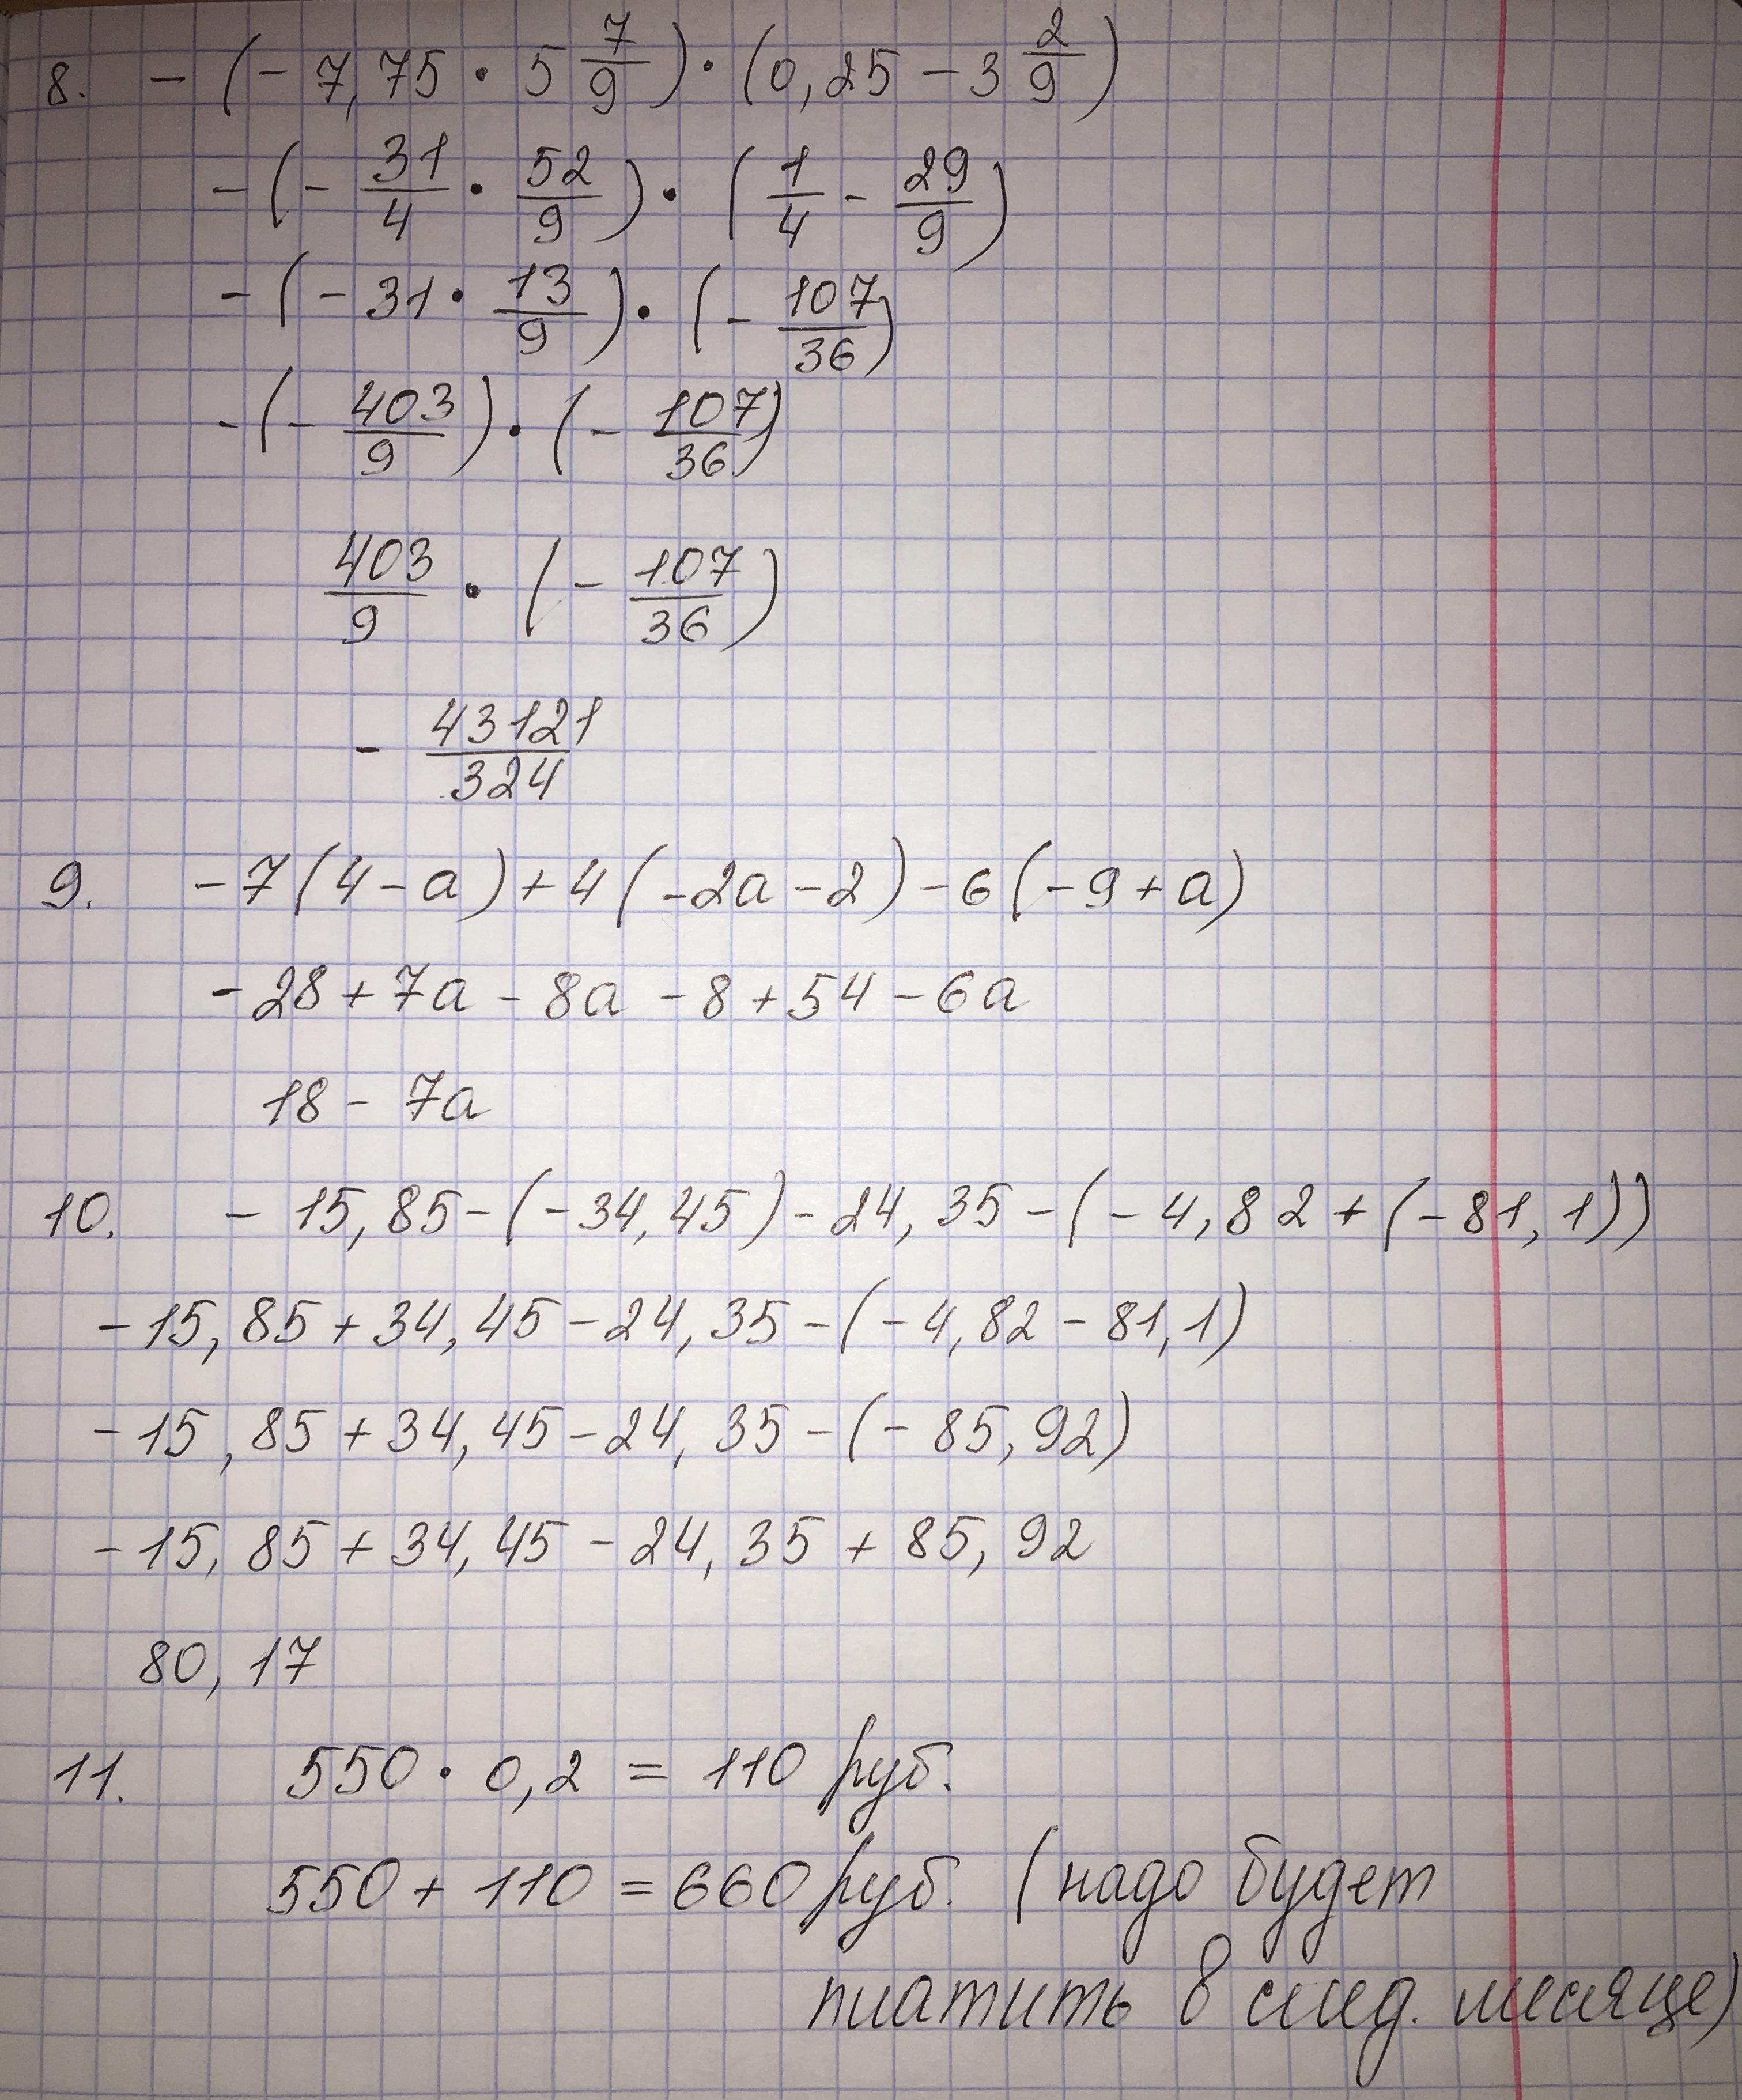 8. - (- 7,75 · 5 7/9) · (0,25 - 3 2/9)
- (- 31/4 · 52/9) · (1/4 - 29/9)
- (- 31 · 13/9) · (- 107/36)
- (- 403/9) · (- 107/36)
403/9 · (- 107/36)
- 43121/324
9. - 7(4 - a) + 4(-2a - 2) - 6(-9 + a)
- 28 + 7a - 8a - 8 + 54 - 6a
18 - 7a
10. - 15,85 - (-34,45) - 24,35 - (-4,82 + (-81,1))
- 15,85 + 34,45 - 24,35 - (-4,82 - 81,1)
- 15,85 + 34,45 - 24,35 - (- 85,92)
- 15,85 + 34,45 - 24,35 + 85,92
80,17
11. 550 · 0,2 = 110 руб.
550 + 110 = 660 руб. (надо будет
платить в след. месяце)